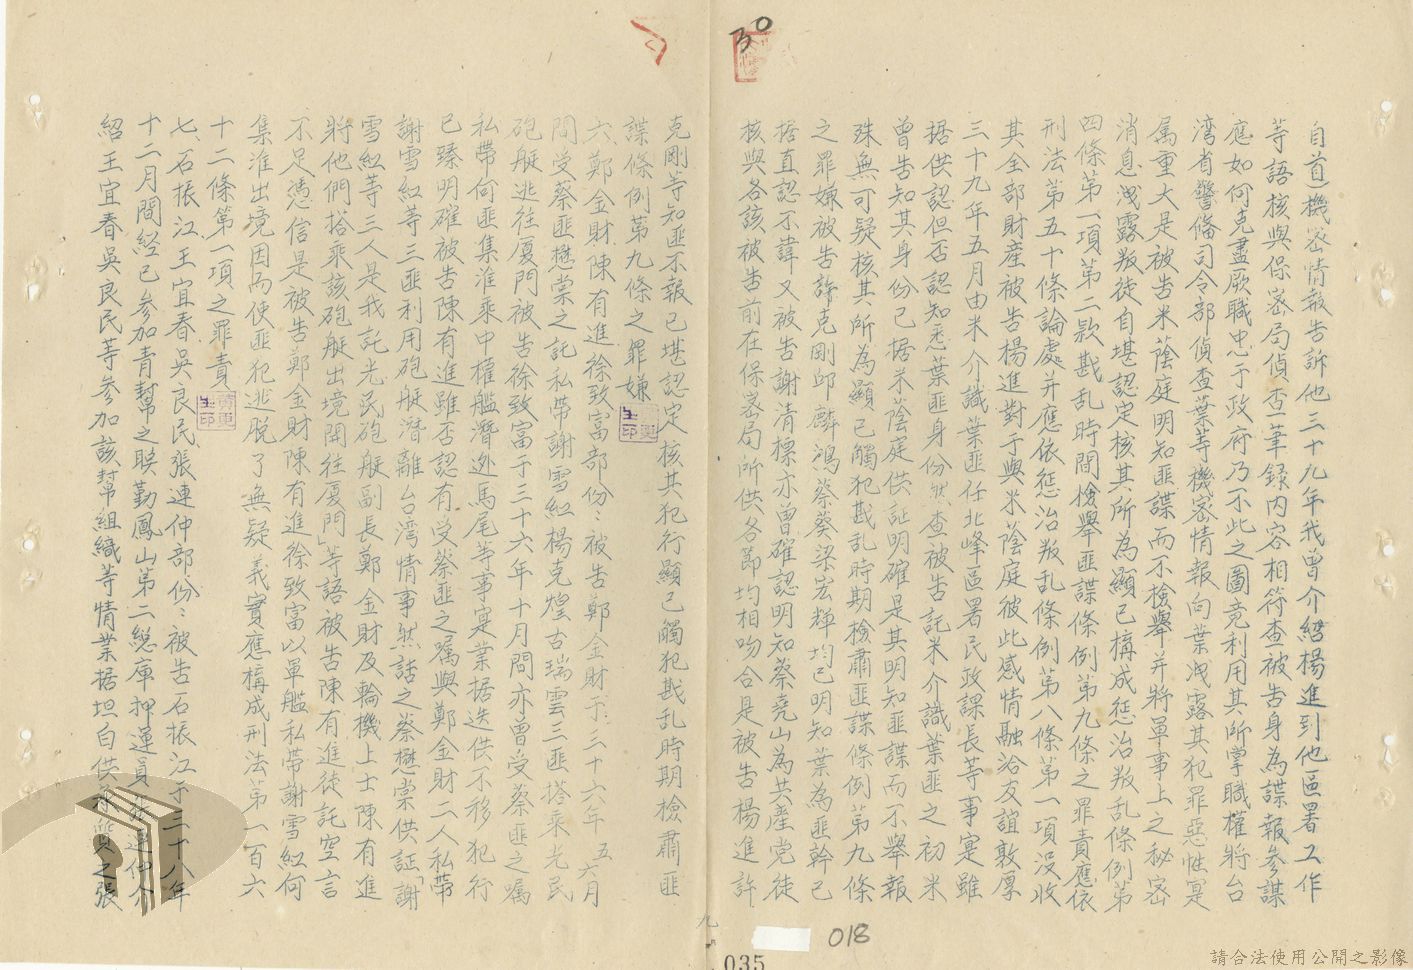 30
自首)機密情報告訴他三十九年我曾介紹楊進到他區署工作
等語核與保密局偵查筆錄內容相符查被告身為諜報參謀
應如何克盡厥職忠于政府乃不此之圖竟利用其所掌職權將台
湾省警偹司令部偵查葉等機密情報向葉洩露其犯罪惡性寔
属重大是被告米蔭庭明知匪諜而不檢舉并將軍事上之秘密
消息洩露叛徒自堪認定核其所為顯已構成惩治叛乱條例第
四條第一項第二款戡乱時間檢舉匪諜條例第九條之罪責應依
刑法第五十條論處并應依惩治叛乱條例第八條第一項沒收
其全部財產被告楊進對于與米蔭庭彼此感情融洽友誼敦厚
三十九年五月由米介識葉匪任北峰區署民政課長等事寔雖
据供認但否認知悉葉匪身份然查被告託米介識葉匪之初米
曾告知其身份已据米蔭庭供証明確是其明知匪諜而不舉報
殊無可疑核其所為顯已觸犯戡乱時期檢肅匪諜條例第九條
之罪嫌被告許克剛邱麟鴻蔡葵梁宏輝均已明知葉為匪幹已
据直認不諱又被告謝清標亦曾確認明知蔡堯山為共產党徒
核與各該被告前在保密局所供各節均相吻合是被告楊進許
克剛等知匪不報已堪認定核其犯行顯已觸犯戡乱時期檢肅匪
諜條例第九條之罪嫌
六、鄭金財陳有進徐致富部份:被告鄭金財于三十六年五六月
間受蔡匪懋棠之託私帶謝雪紅楊克煌古瑞雲三匪搭乘光民
砲艇逃往厦門被告徐致富于三十六年十月間亦曾受蔡匪之囑
私帶何匪集淮乘中權艦潛逃馬尾等事寔業据迭供不移犯行
已臻明確被告陳有進雖否認有受蔡匪之囑與鄭金財二人私帶
謝雪紅等三匪利用砲艇潛離台湾情事然話之蔡懋棠供証「謝
雪紅等三人是我託光民砲艇副長鄭金財及輪機上士陳有進
將他們搭乘該砲艇出境開往厦門」等語被告陳有進徒託空言
不足憑信是被告鄭金財陳有進徐致富以軍艦私帶謝雪紅何
集淮出境因而使匪犯逃脫了無疑義實應構成刑法第一百六
十二條第一項之罪責
七、石振江王宜春吳良民張連仲部份:被告石振江于三十八年
十二月間經已參加青幫之聯勤鳳山第二總庫押運員張連仲介
紹王宜春吳良民等參加該幫組織等情業据坦白供承質之張
九
018
035
請合法使用公開之影像